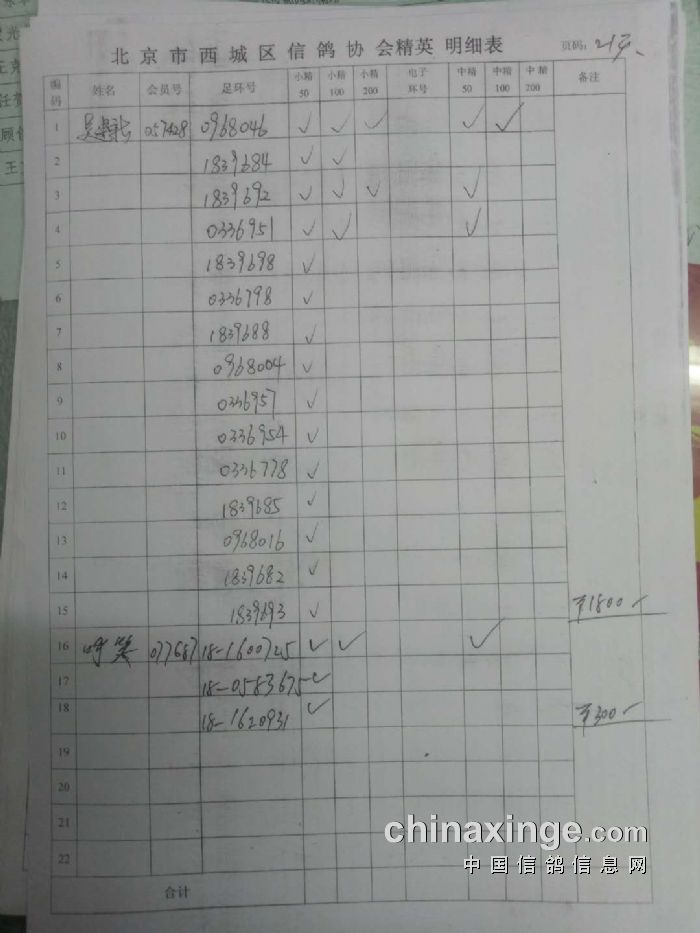 北京市西城区信鸽协会精英 明细表 页码：
编码 姓名 会员号 足环号 小精50 小精100 小精200 电子环号 中精50 中精100 中精200 备注
1 057428 0968046 ✓ ✓ ✓ ✓ ✓
2 1839684 ✓ ✓
3 1839692 ✓ ✓ ✓ ✓
4 0336951 ✓ ✓ ✓
5 1839698 ✓
6 0336798 ✓
7 1839688 ✓
8 0968004 ✓
9 0336957 ✓
10 0336954 ✓
11 0336778 ✓
12 1839685 ✓
13 0968016 ✓
14 1839682 ✓
15 1839693 ✓ ¥1800
16 077687 18-1600725 ✓ ✓ ✓
17 18-0583675 ✓
18 18-1620931 ✓ ¥300
19
20
21
22
合计
chinaxinge.com
中国信鸽信息网